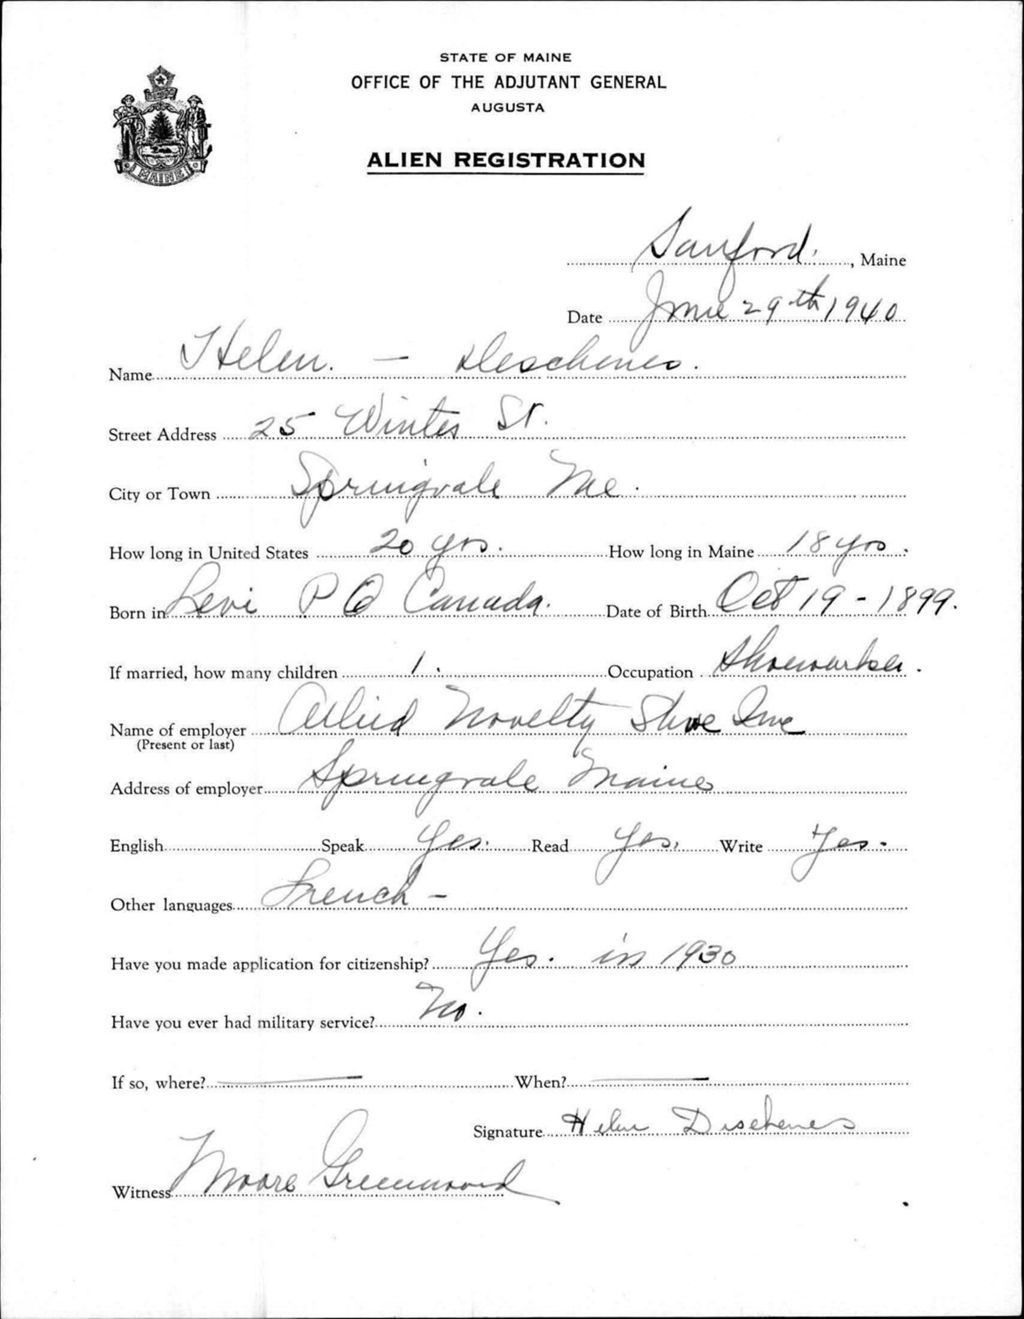 STATE OF MAINE
OFFICE OF THE ADJUTANT GENERAL
AUGUSTA
ALIEN REGISTRATION
MAINE
Sanford. , Maine
Date June 29th 1940
Name Helen. – Deschenes.
Street Address 25 Winter St.
City or Town Springvale Me.
How long in United States 20 yrs. How long in Maine 18 yrs.
Born in Levi P Q Canada. Date of Birth Oct 19 - 1899.
If married, how many children 1. Occupation Shoeworker.
Name of employer Allied Novelty Shoe Inc
(Present or last)
Address of employer Springvale Maine
English Speak Yes. Read Yes. Write Yes.
Other languages French –
Have you made application for citizenship? Yes. in 1930
Have you ever had military service? No.
If so, where? — When? —
Signature Helen Deschenes
Witness Moore Greenwood